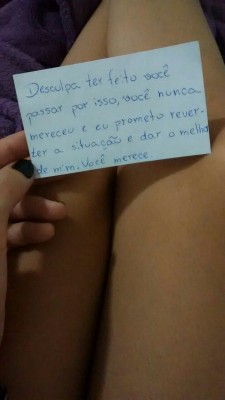 Desculpa ter feito você
passar por isso, você nunca
mereceu e eu prometo rever-
ter a situação e dar o melhor
de mim. Você merece.